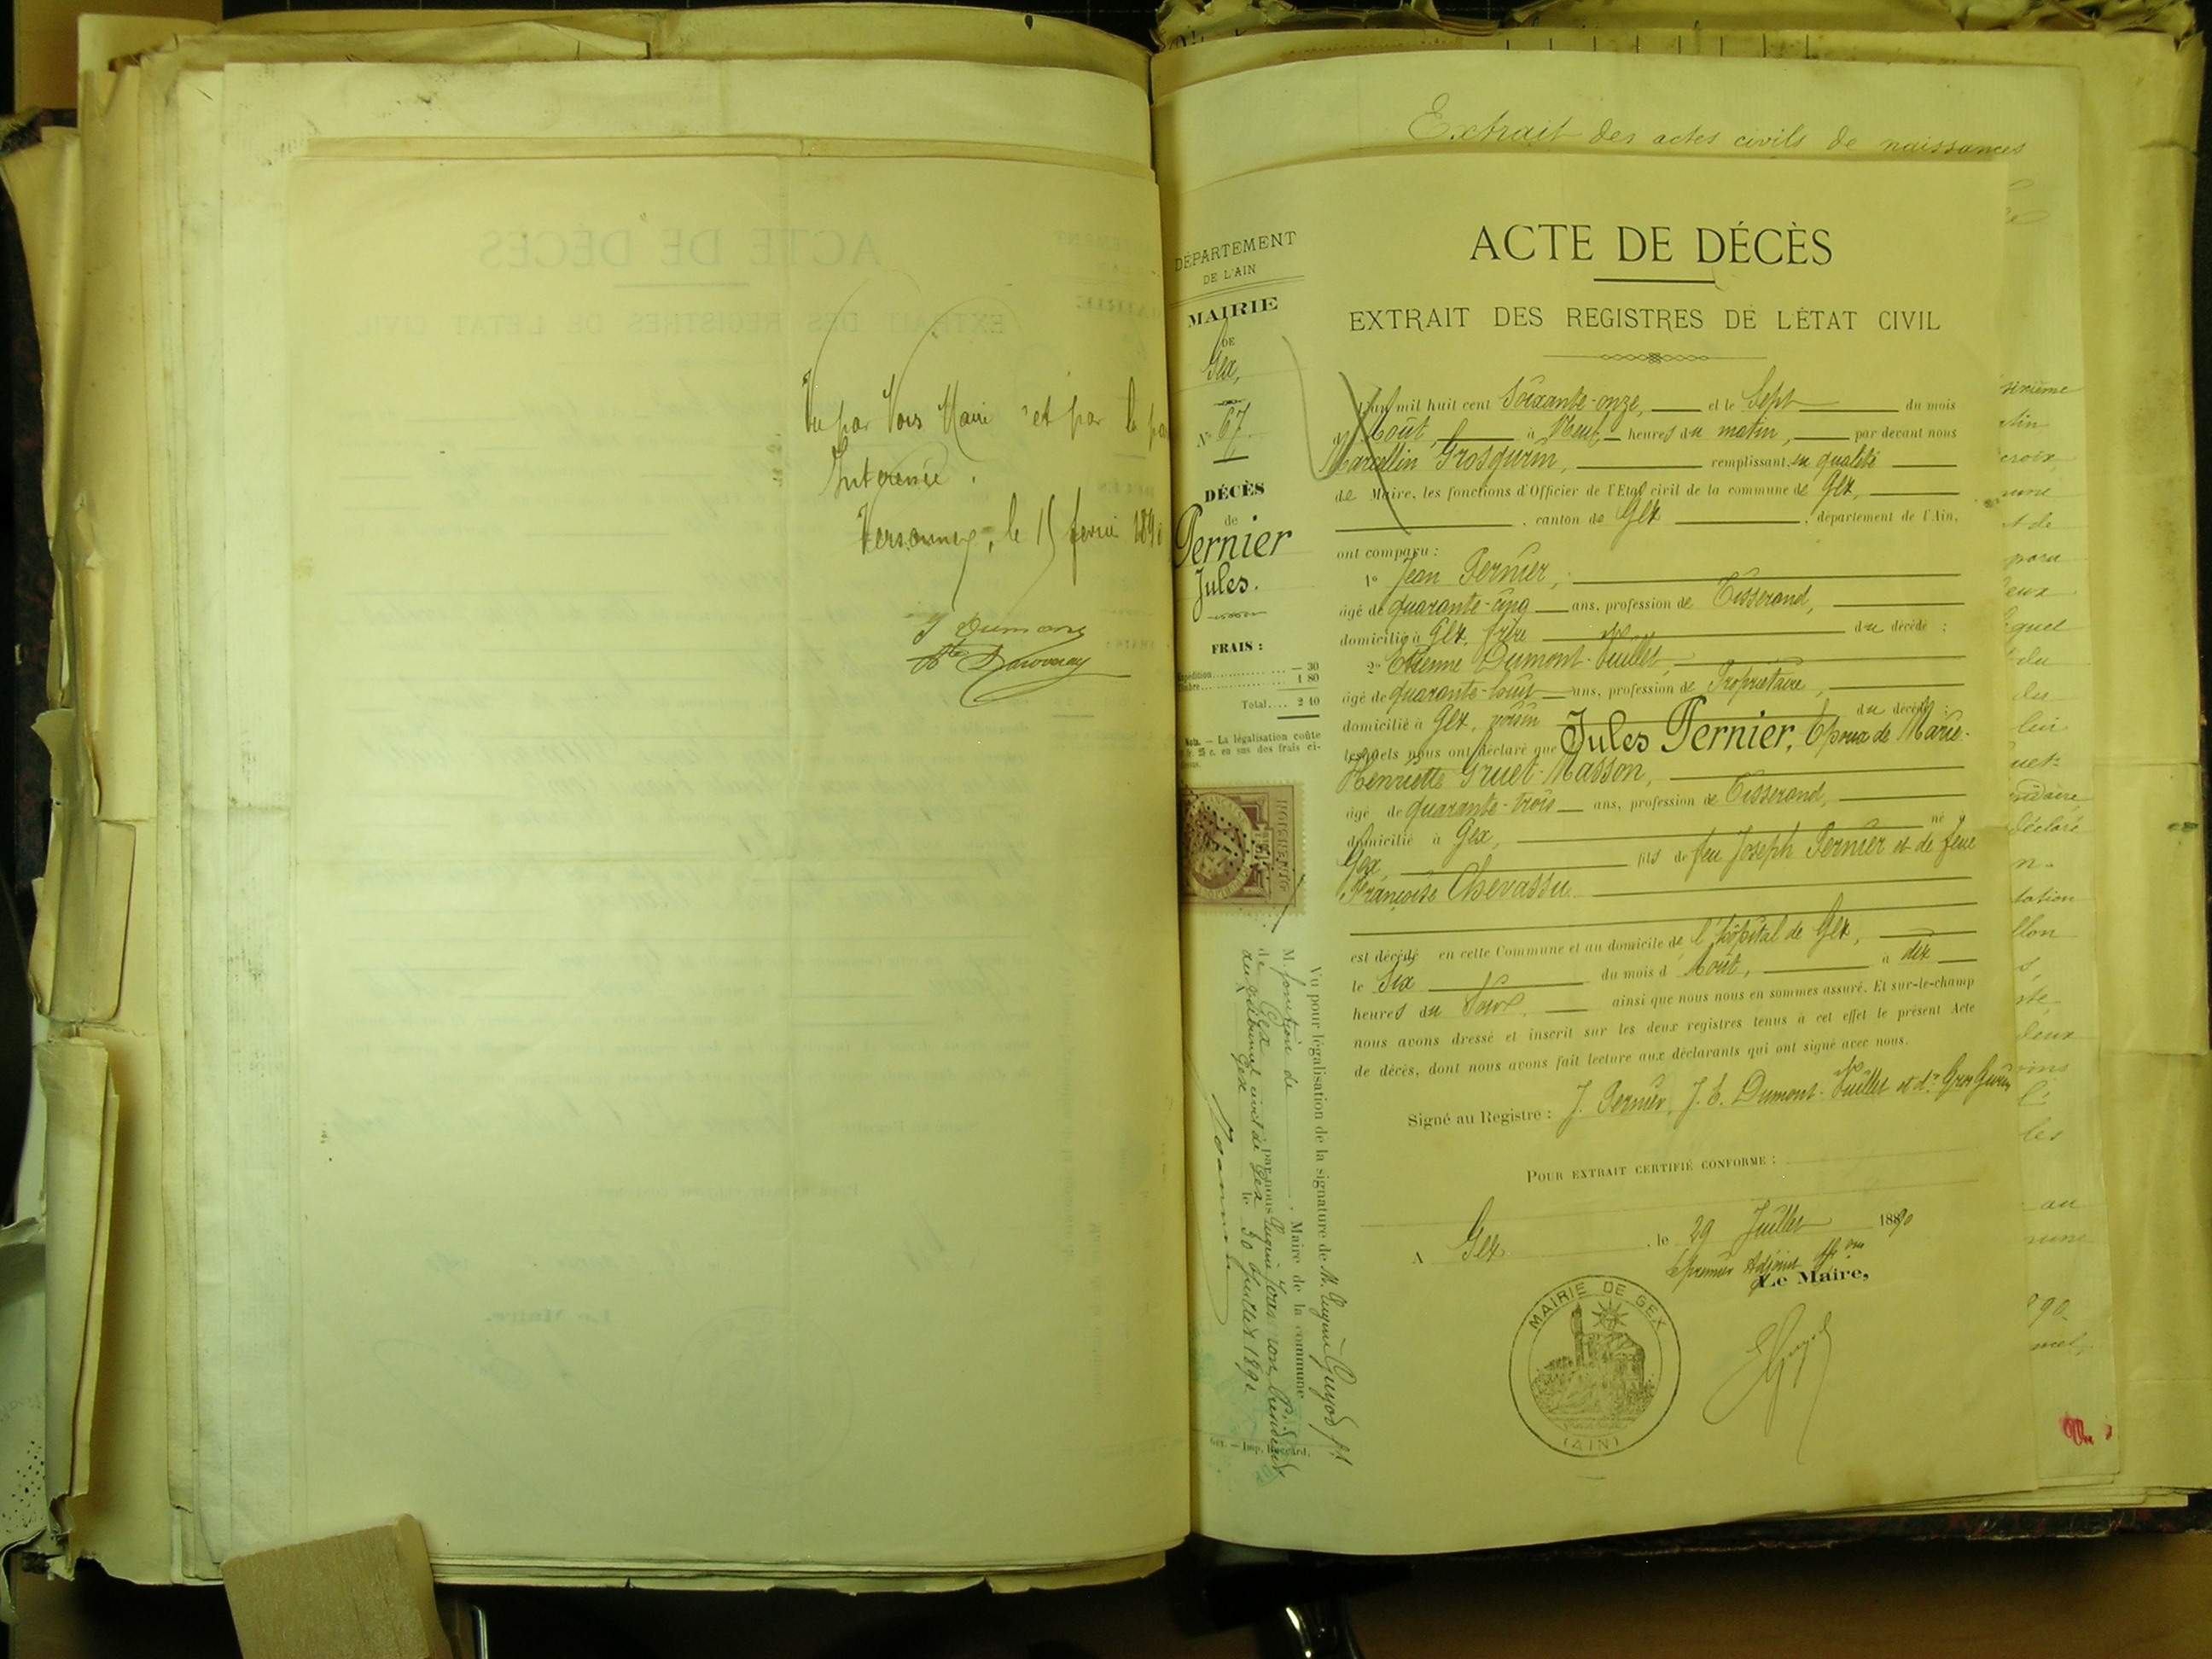 Vu par Nous Maire et par le
Interimée.
Versonnex, le 15 fevrier 189
J Dumons
Extrait des actes civils de naissances
DÉPARTEMENT
DE L'AIN
MAIRIE
DE
Gex,
N° 67.
DÉCÈS
de
Pernier
Jules.
FRAIS :
Expédition.......... — 30
Timbre............ 1 80
Total.... 2 10
Nota. — La légalisation coûte
25 c. en sus des frais ci-
ACTE DE DÉCÈS
EXTRAIT DES REGISTRES DE L'ÉTAT CIVIL
L'an mil huit cent Soixante-onze, et le Sept du mois
d'Août, à Neuf heures du matin, par devant nous
Marcellin Grosgurin, remplissant en qualité
de Maire, les fonctions d'Officier de l'Etat civil de la commune de Gex,
, canton de Gex, département de l'Ain,
ont comparu :
1° Jean Pernier,
âgé de quarante-cinq ans, profession de Tisserand,
domicilié à Gex, frère du décédé ;
2° Etienne Dumont-
âgé de quarante-huit ans, profession de Propriétaire,
domicilié à Gex, voisin du décédé ;
lesquels nous ont déclaré que Jules Pernier, Epoux de Marie-
Henriette Gruet-Masson,
âgé de quarante-trois ans, profession de Tisserand,
domicilié à Gex, né
Gex, fils de feu Joseph Pernier et de feue
Françoise Chevassu
est décédé en cette Commune et au domicile de l'hôpital de Gex,
le Six du mois d'Août, à dix
heures du Soir, ainsi que nous nous en sommes assuré. Et sur-le-champ
nous avons dressé et inscrit sur les deux registres tenus à cet effet le présent Acte
de décès, dont nous avons fait lecture aux déclarants qui ont signé avec nous.
Signé au Registre : J. Pernier, J. E. Dumont- et dr GrosGurin
POUR EXTRAIT CERTIFIÉ CONFORME :
A Gex, le 29 Juillet 1890
Le premier Adjoint ffon
Le Maire,
MAIRIE DE GEX
(AIN)
Vu pour légalisation de la signature de M. Guyod
M. fonction de Maire de la commune
de Gex par nous
du tribunal civil de Gex
Gex le 30 Juillet 1890
Gex. — Imp.